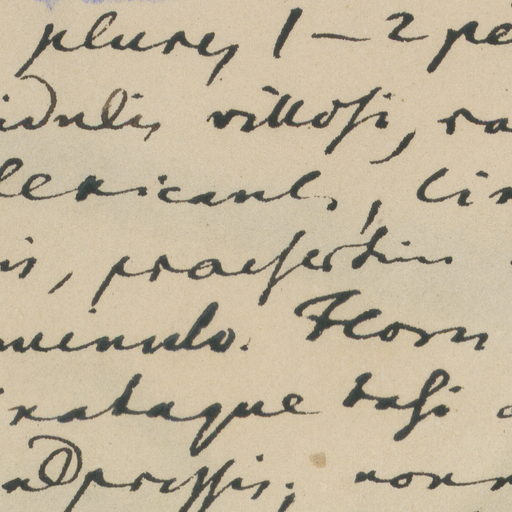 plures 1–2 pe
idulis villosi, ra
lexicaul, lin
is, praesertim
inulo. Flori
xataque basi
adpressis; nonn